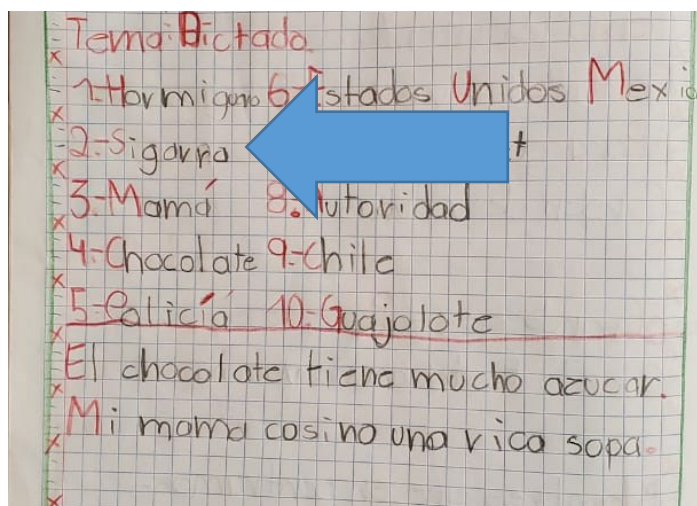 Tema: Dictado.
1-Hormiguno 6-Estados Unidos Mexic
2-Sigarra t
3-Mamá 8.Autoridad
4-Chocolate 9-Chile
5-Policía 10-Guajolote
El chocolate tiene mucho azucar.
Mi mama cosino una rica sopa.